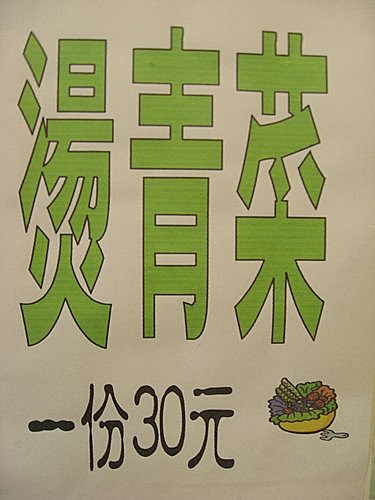 燙青菜
一份30元